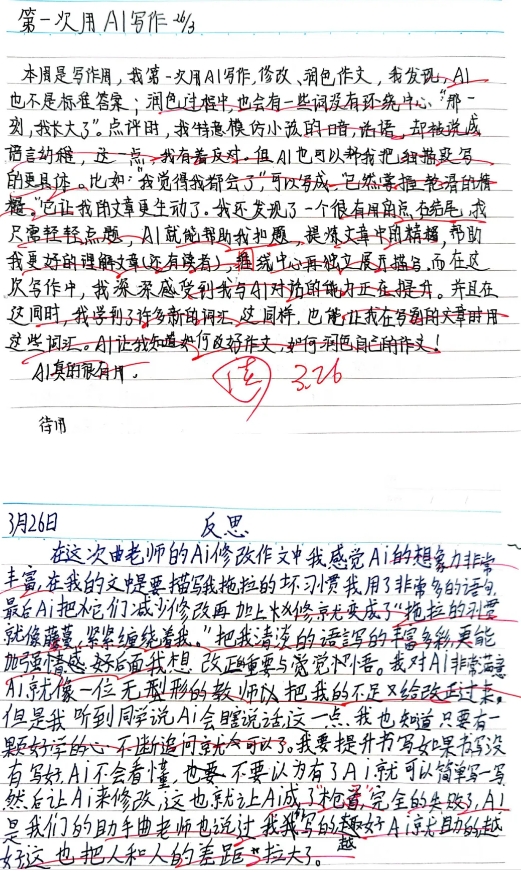 第一次用AI写作 26/3
本周是写作周，我第一次用AI写作，修改、润色作文，我发现，AI
也不是标准答案；润色过程中，也会有一些词没有环绕中心。"那一
刻，我长大了"。点评时，我特意模仿小孩的口语，却被说成
语言幼稚，这一点，我有着反对。但AI也可以帮我把细描改写
的更具体。比如："我觉得我都会了"，可以写成"已然掌握
髓。"它让我的文章更生动了。我还发现了一个很有用的点，在结尾，我
只需轻轻点题，AI就能帮助我扣题，提炼文章中的精髓，帮助
我更好的理解文章(还有读者)，围绕中心再独立展开描写。而在这
次写作中，我深深感受到我与AI对话的能力正在提升。并且在
这同时，我学到了许多新的词汇，这同样，也能让我在写别的文章时用
这些词汇。AI让我知道如何改好作文，如何润色自己的作文！
AI真的很有用。
3.26
待用
3月26日 反思
在这次曲老师的Ai修改作文中我感觉Ai的想象力非常
丰富，在我的文中是要描写我拖拉的坏习惯我用了非常多的语句，
最后Ai把它们减少修改再加上火火修京尤变成了"拖拉的习惯
就像藤蔓，紧紧缠绕着我。"把我清淡的语言写的丰富多彩，更能
加强情感，好后面我想 改正重要与觉觉忏悟。我对Ai非常满意
Ai就像一位无型形的教师以把我的不足又给改正过来。
但是我 听到同学说Ai会瞎说话这一点，我也知道只要有一
颗好学的心 不断追问就会可以了。我要提升书写如果书写没
有写好，Ai不会看懂，也要 不要以为有了Ai就可以简单写一写
然后让Ai来修改，这也就让Ai成了"枪手"完全的失败了，AI
是我们的助手曲老师也说过 我写的越好Ai就帮助的越
好这 也把人和人的差距"拉大了。